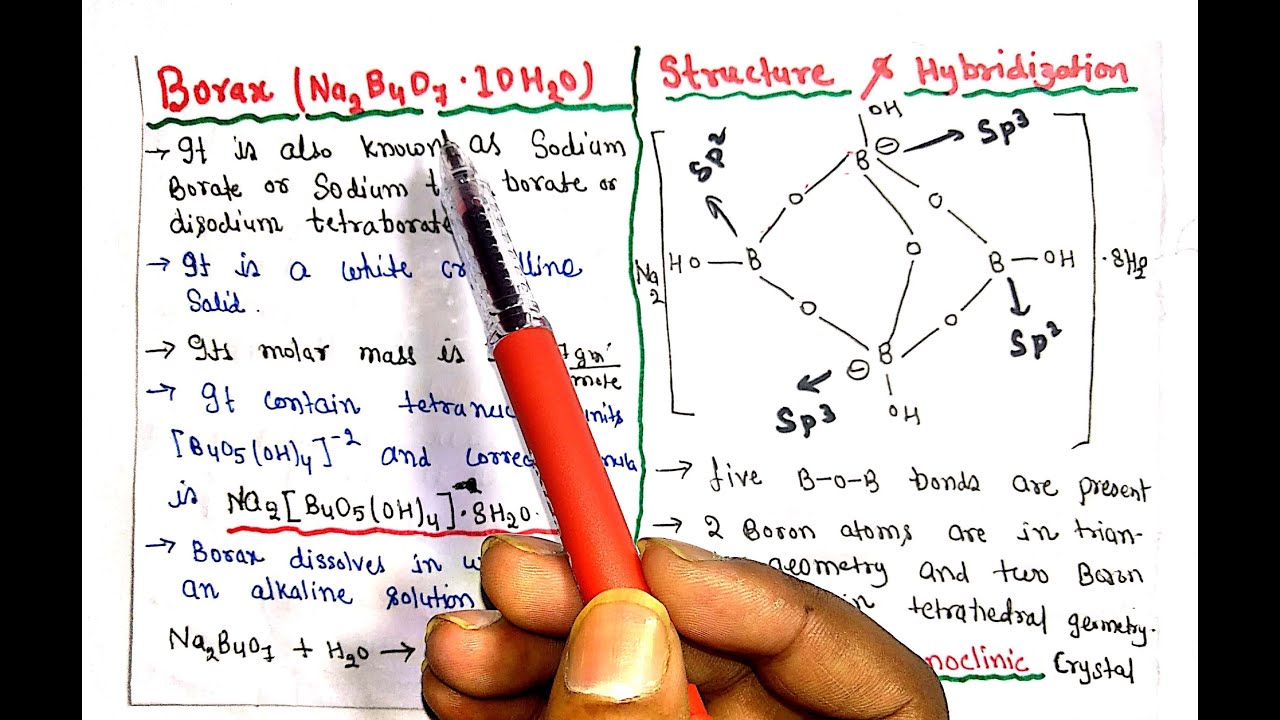 Borax (Na2B4O7·10H2O)
→ It is also known as Sodium
Borate or Sodium borate or
disodium tetraborate
→ It is a white
Salid.
→ Its molar mass is gm/mole
→ It contain
[B4O5(OH)4]-2 and
is Na2[B4O5(OH)4]·8H2O.
→ Borax dissolves in
an alkaline solution
Na2B4O7 + H2O →
Structure & Hybridization
OH
B ⊖ → Sp3
Sp2
O O
O
Na2 [ HO — B B — OH ] ·8H2O
O O
Sp2
⊖ B
Sp3
OH
→ five B-O-B bonds are present
→ 2 Boron atoms are in trian-
geometry and two Boron
in tetrahedral geometry.
Crystal